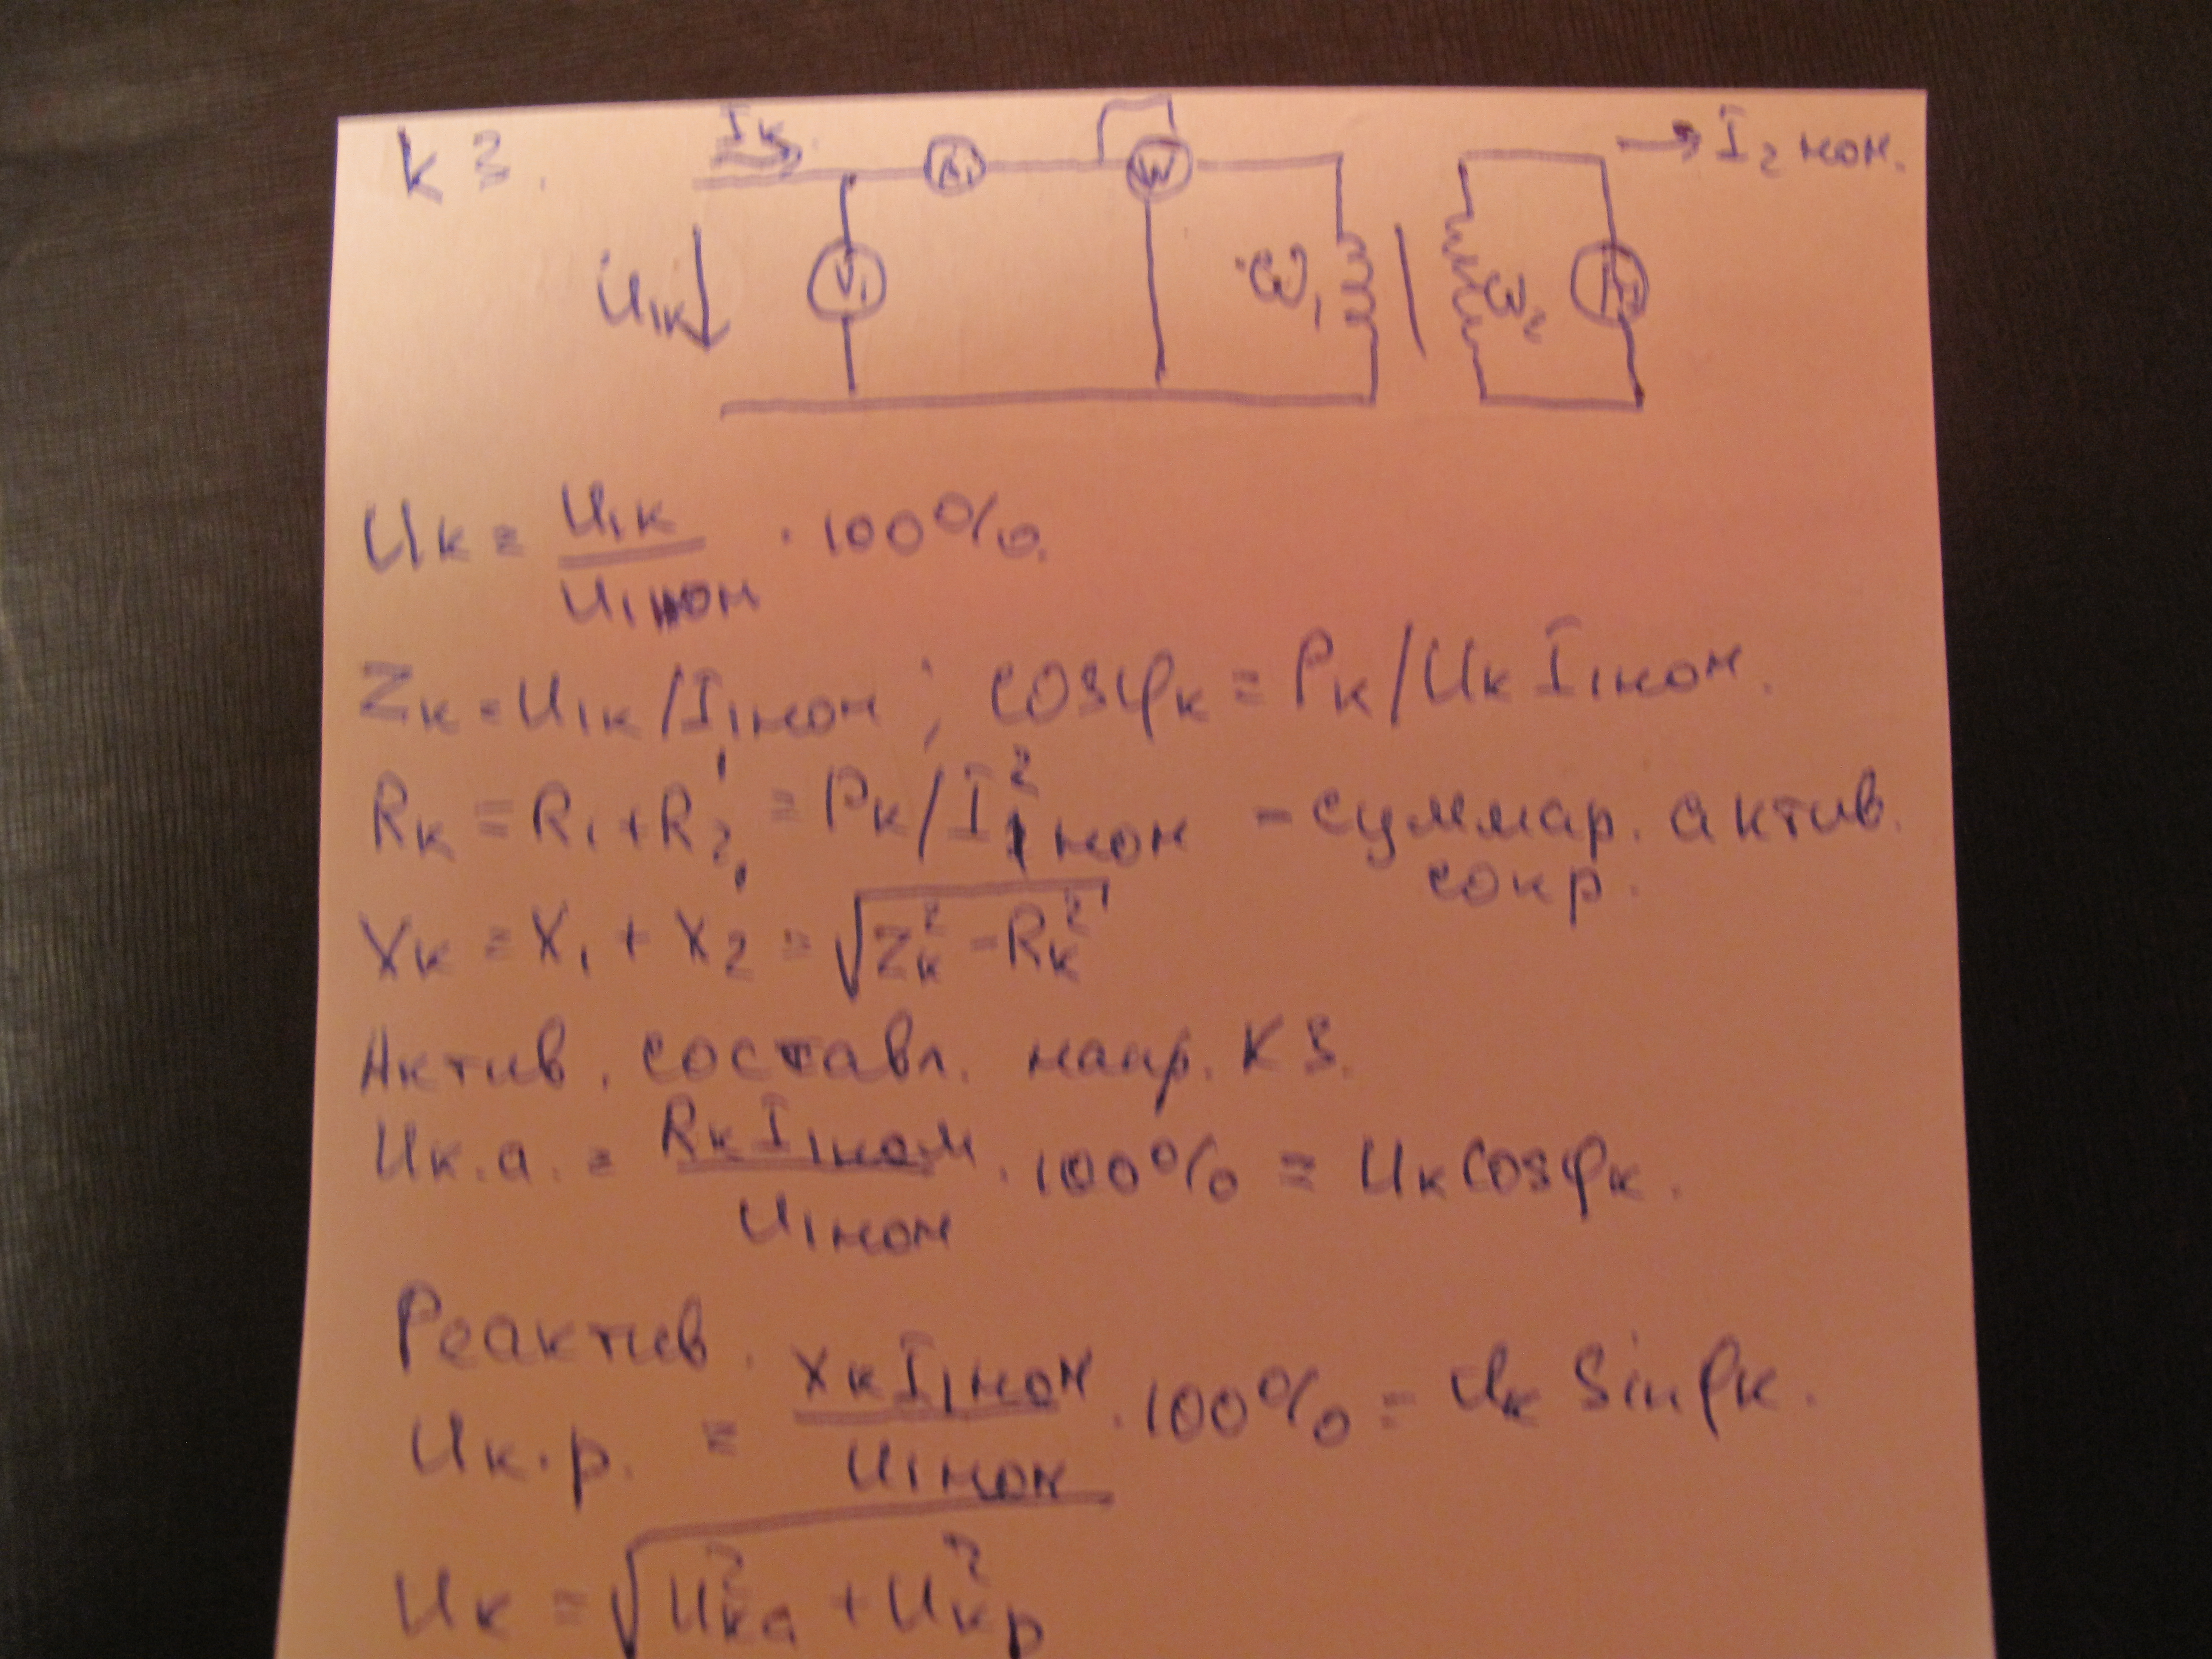 КЗ.
Iк
A1
W
I2 ном.
U1к
V1
ω1
ω2
Uк = U1к / U1ном · 100%.
Zк = U1к / I1ном ; cosφк = Pк / Uк I1ном.
Rк = R1 + R2' = Pк / I1²ном – суммар. актив.
сопр.
Xк = X1 + X2' = √(Zк² – Rк²)
Актив. составл. напр. КЗ.
Uк.а. = Rк I1ном / U1ном · 100% = Uк cosφк.
Реактив.
Uк.р. = Xк I1ном / U1ном · 100% = Uк sinφк.
Uк = √(Uка² + Uкр²)